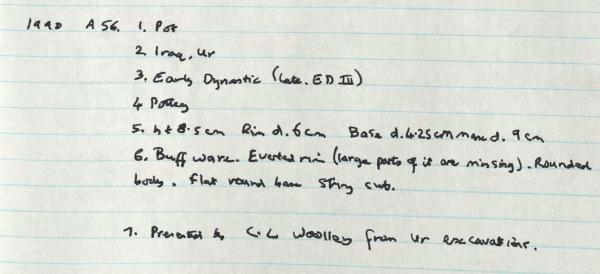 1990 A 56. 1. Pot
2. Iraq, Ur
3. Early Dynastic (late. ED III)
4 Pottery
5. ht 8.5cm Rim d. 6cm Base d. 4.25cm max d. 9cm
6. Buff ware. Everted rim (large parts of it are missing). Rounded
body. Flat round base string cut.
7. Presented by C.L. Woolley from Ur excavations.